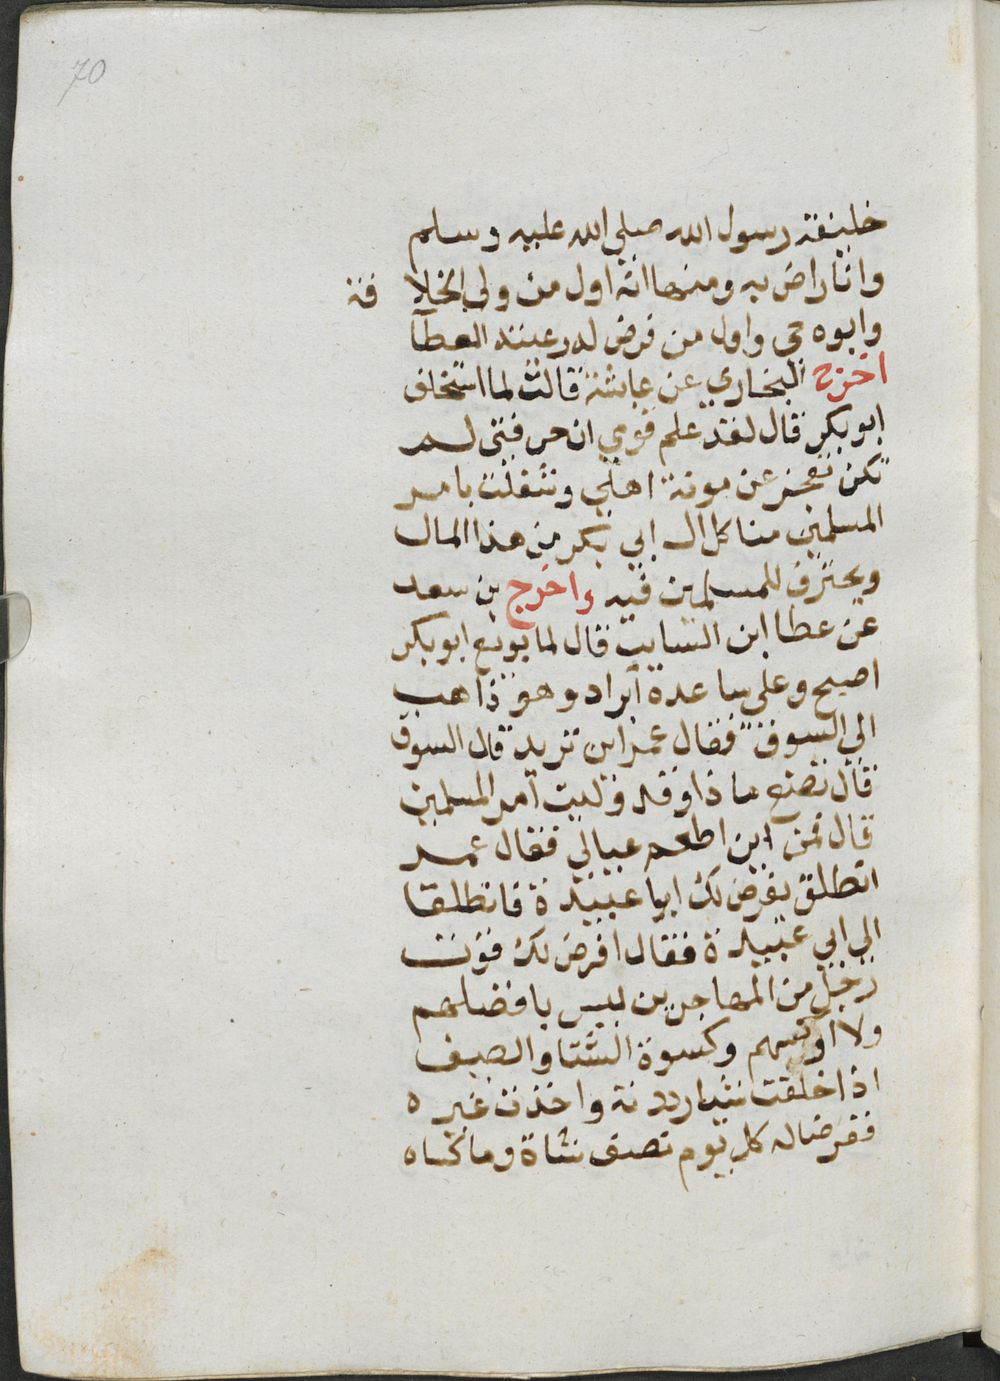 70
خليفة رسول الله صلي الله عليه وسلم
وانا راض به ومنها انه اول من ولي الخلا فة
وابوه حي واول من فرض له رعيته العطآ
اخرج البخاري عن عايشة قالت لما استخلف
ابو بكر قال لقد علم قومي ان حرفتي لم
تكن تعجز عن مونة اهلي وشغلت بامر
المسلمين فسياكل ال ابي بكر من هذا المال
ويحترف للمسلمين فيه واخرج بن سعد
عن عطا ابن السايب قال لما بويع ابو بكر
اصبح وعلي ساعده ابراد وهو ذاهب
الي السوق فقال عمر اين تريد قال السوق
قال تصنع ماذا وقد وليت امر المسلمين
قال فمن اين اطعم عيالي فقال عمر
انطلق يفرض لك ابو عبيدة فانطلقا
الي ابي عبيدة فقال افرض لك قوت
رجل من المهاجرين ليس بافضلهم
ولا اوكسهم وكسوة الشتا والصيف
اذا اخلقت شيا رددته واخذت غيره
ففرضا له كل يوم نصف شاة وما كساه